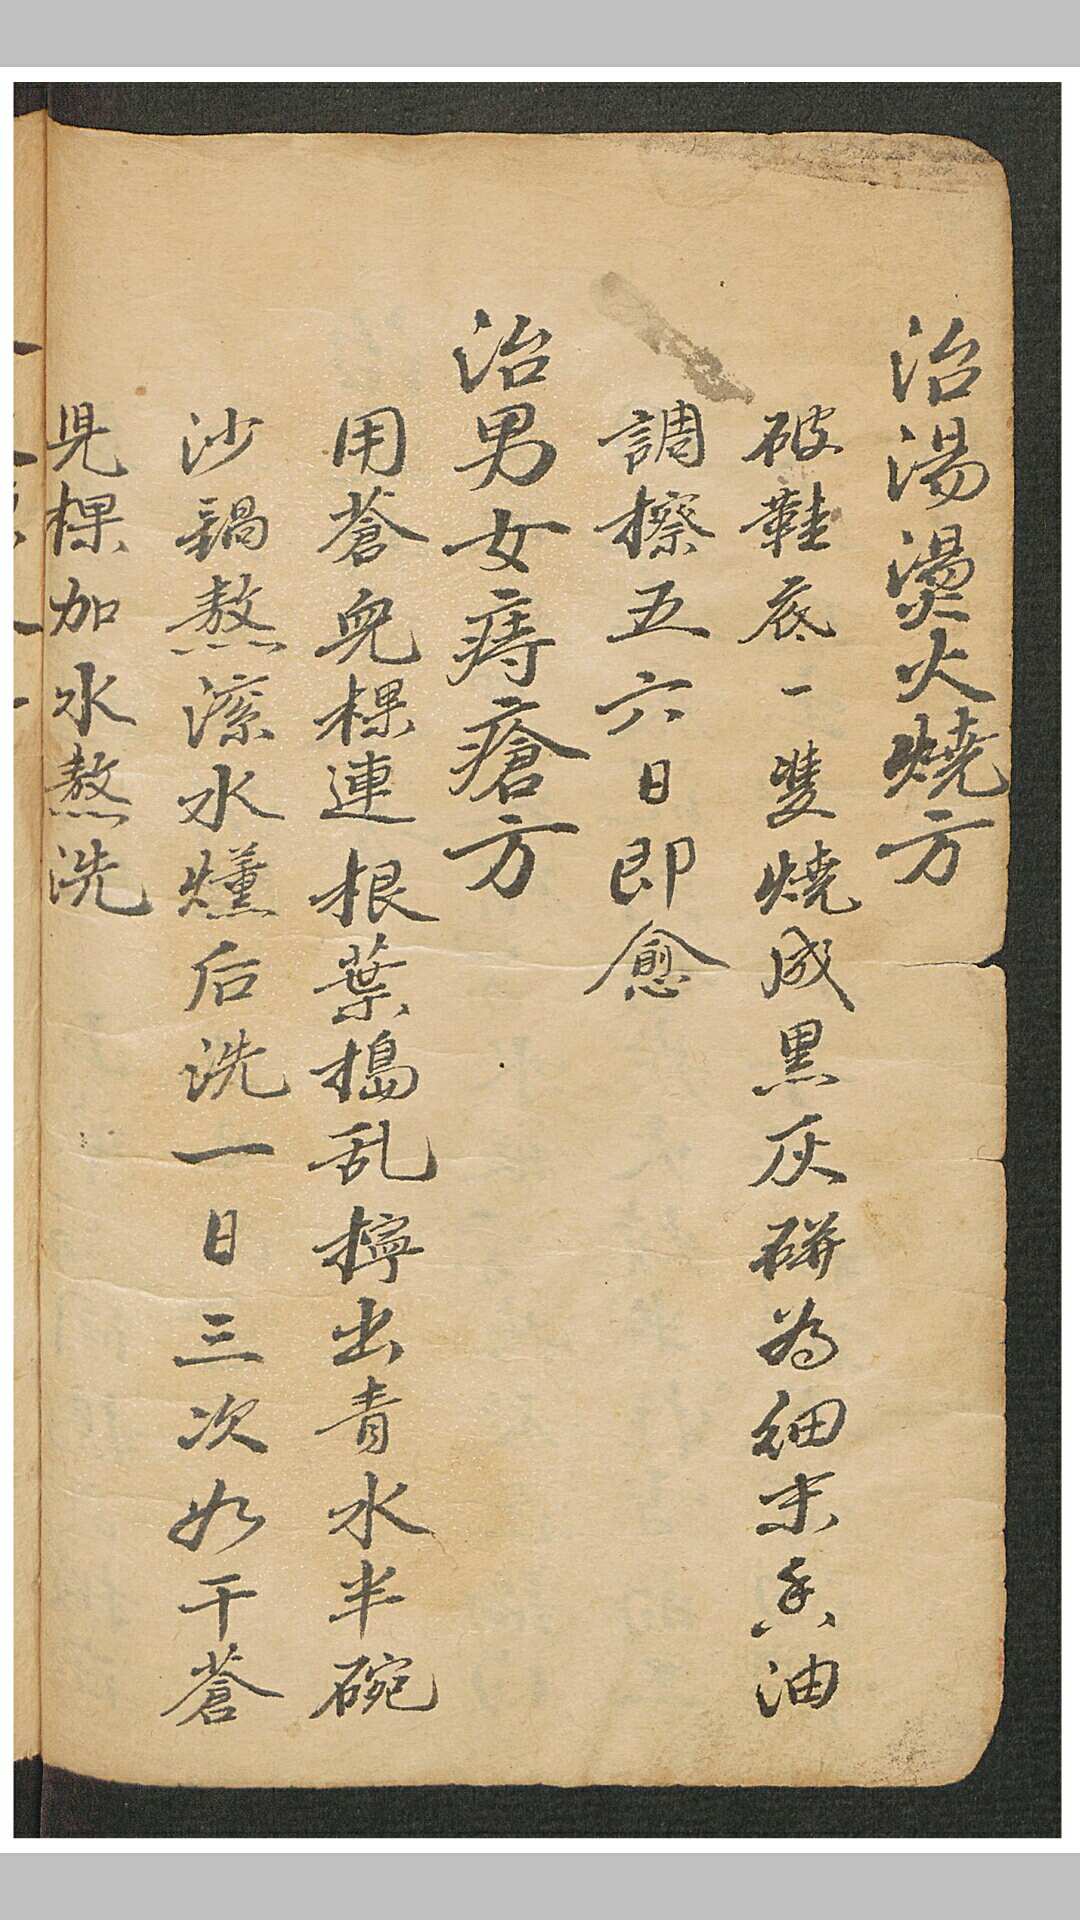 治湯燙火燒方
破鞋底一雙燒成黑灰研為細末香油
調擦五六日即愈
治男女痔瘡方
用蒼兒棵連根葉搗乱擰出青水半碗
沙鍋熬滾水燻后洗一日三次如干蒼
兒棵加水熬洗